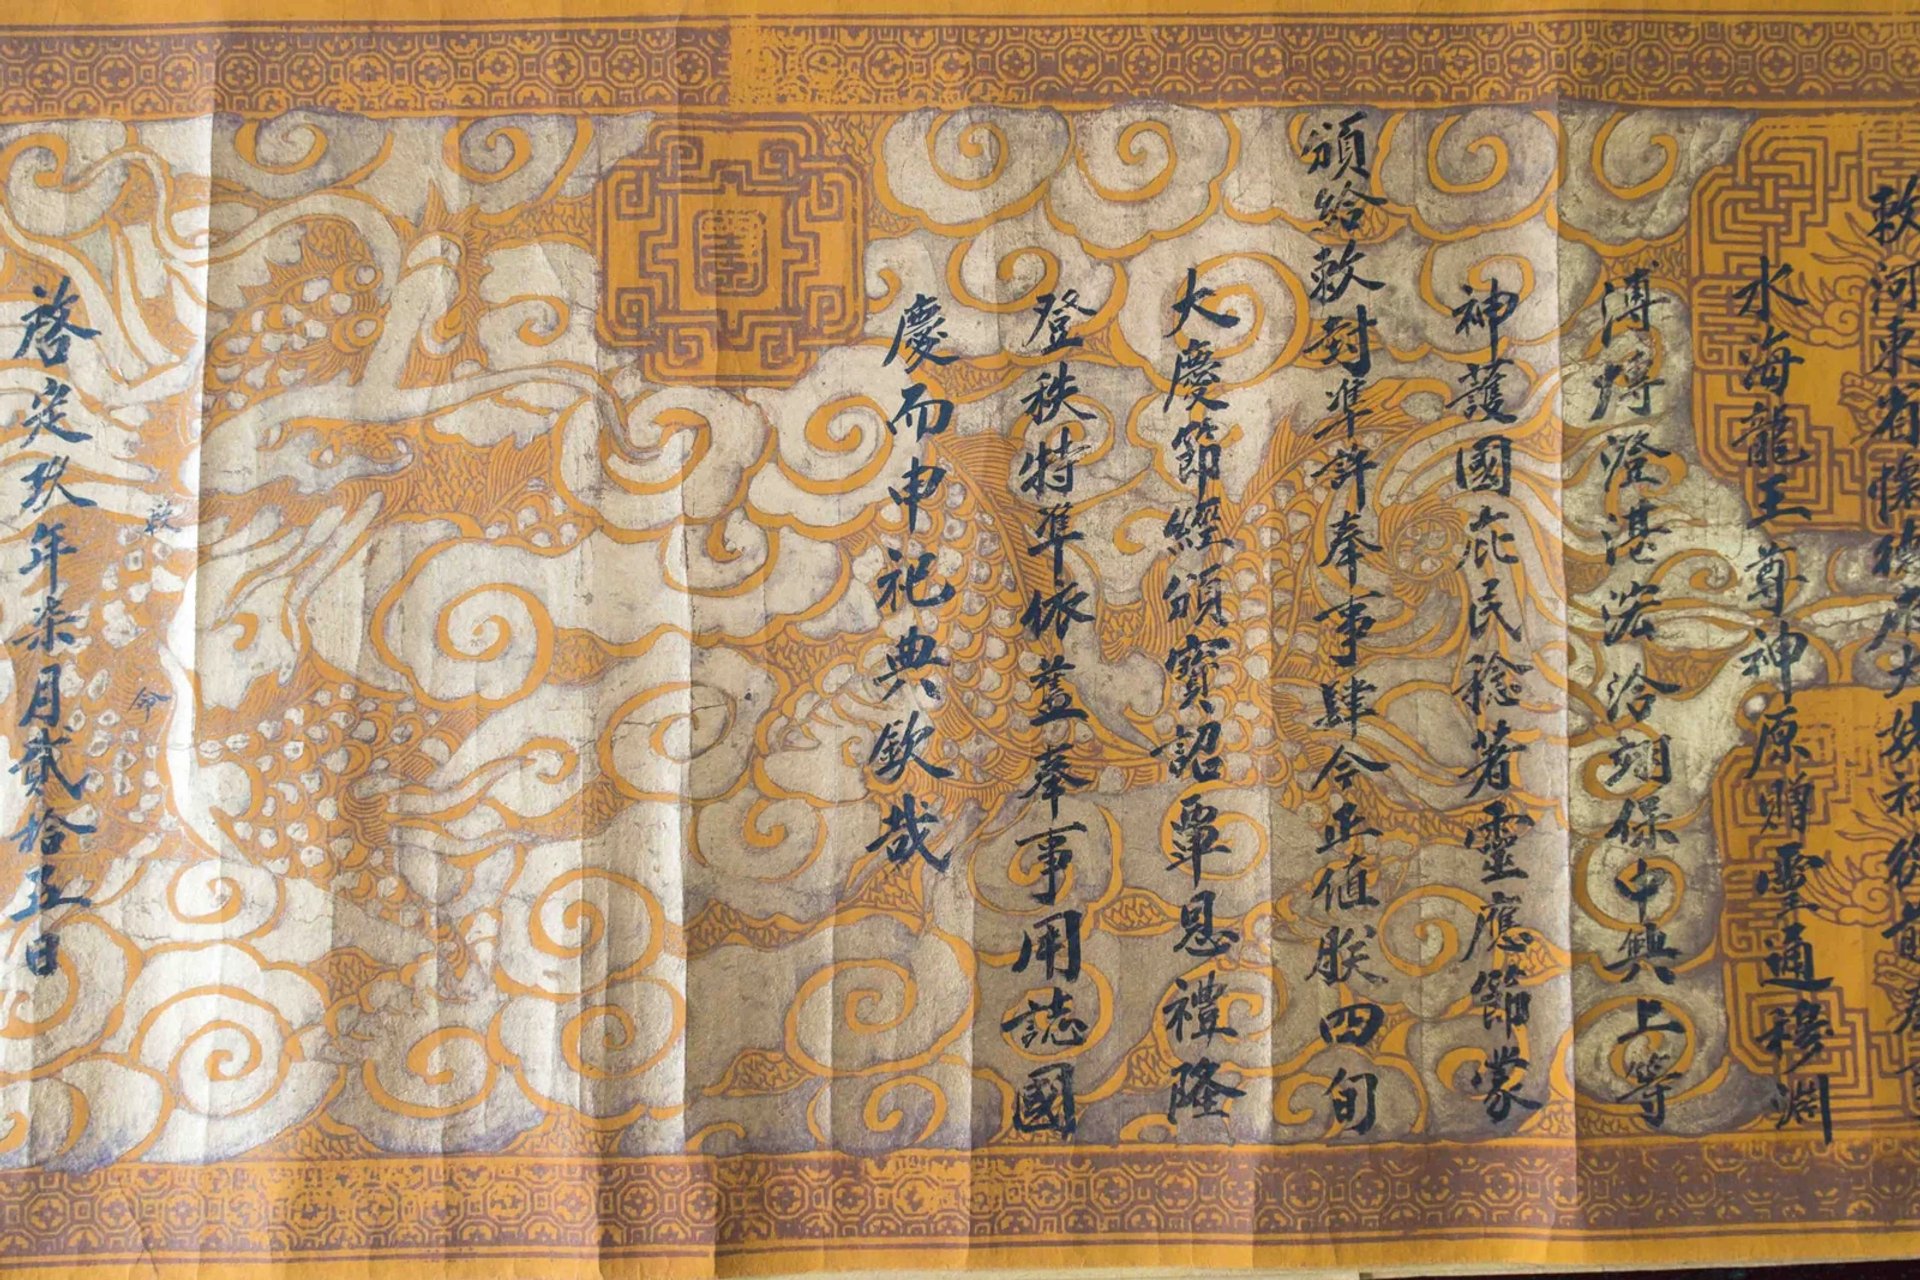 敕河東省懷德府大姥社從前奉事
水海龍王尊神原贈靈通穆淵
溥博澄湛浤洽翊保中興上等
神護國庇民稔著靈應節蒙
頒給敕封準許奉事肆今正值朕四旬
大慶節經頒寶詔覃恩禮隆
登秩特準依舊奉事用誌國
慶而申祀典欽哉
敕命
啓定玖年柒月貳拾五日